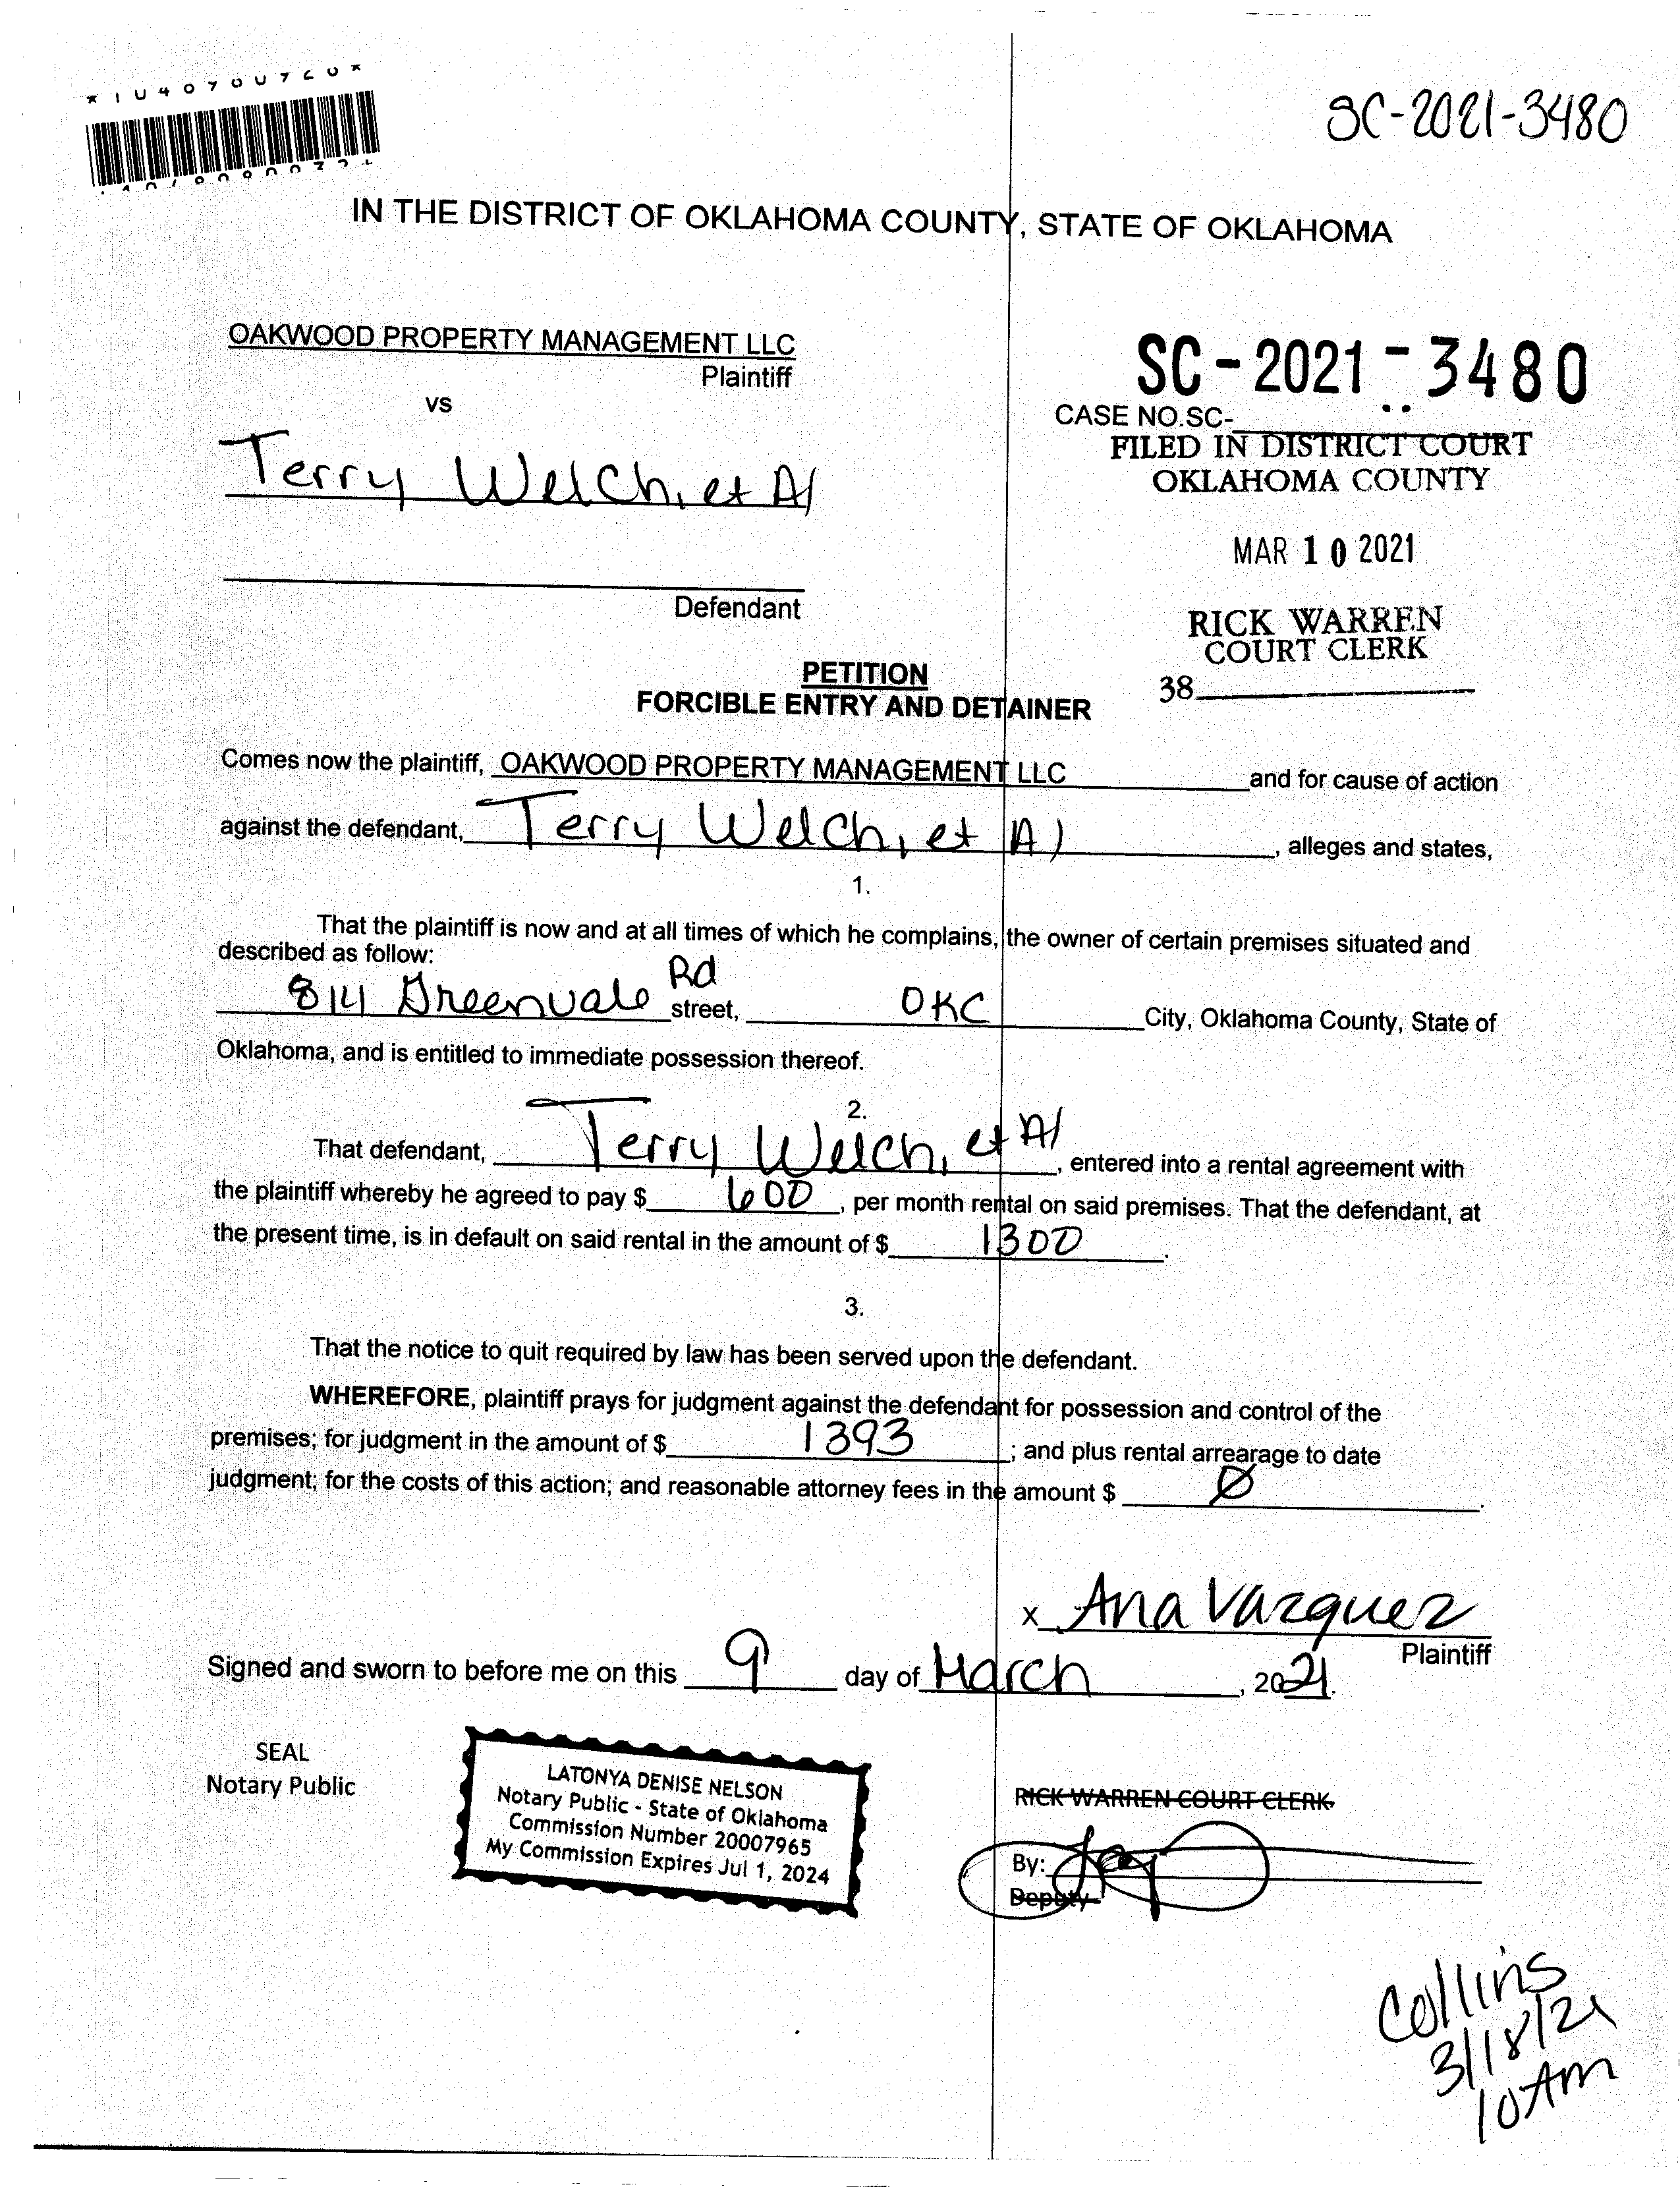 SC-2021-3480
IN THE DISTRICT OF OKLAHOMA COUNTY, STATE OF OKLAHOMA
OAKWOOD PROPERTY MANAGEMENT LLC
Plaintiff
vs
Terry Welch, et Al
Defendant
SC-2021-3480
CASE NO.SC-
FILED IN DISTRICT COURT
OKLAHOMA COUNTY
MAR 10 2021
RICK WARREN
COURT CLERK
38
PETITION
FORCIBLE ENTRY AND DETAINER
Comes now the plaintiff, OAKWOOD PROPERTY MANAGEMENT LLC and for cause of action
against the defendant, Terry Welch, et Al, alleges and states,
1.
That the plaintiff is now and at all times of which he complains, the owner of certain premises situated and
described as follow:
814 Greenvale Rd street, OKC City, Oklahoma County, State of
Oklahoma, and is entitled to immediate possession thereof.
2.
That defendant, Terry Welch, et Al, entered into a rental agreement with
the plaintiff whereby he agreed to pay $ 600, per month rental on said premises. That the defendant, at
the present time, is in default on said rental in the amount of $ 1300.
3.
That the notice to quit required by law has been served upon the defendant.
WHEREFORE, plaintiff prays for judgment against the defendant for possession and control of the
premises; for judgment in the amount of $ 1393; and plus rental arrearage to date
judgment; for the costs of this action; and reasonable attorney fees in the amount $ Ø.
x Ana Vazquez
Plaintiff
Signed and sworn to before me on this 9 day of March, 2021.
SEAL
Notary Public
LATONYA DENISE NELSON
Notary Public - State of Oklahoma
Commission Number 20007965
My Commission Expires Jul 1, 2024
RICK WARREN COURT CLERK
By:
Deputy
Collins
3/18/21
10 Am